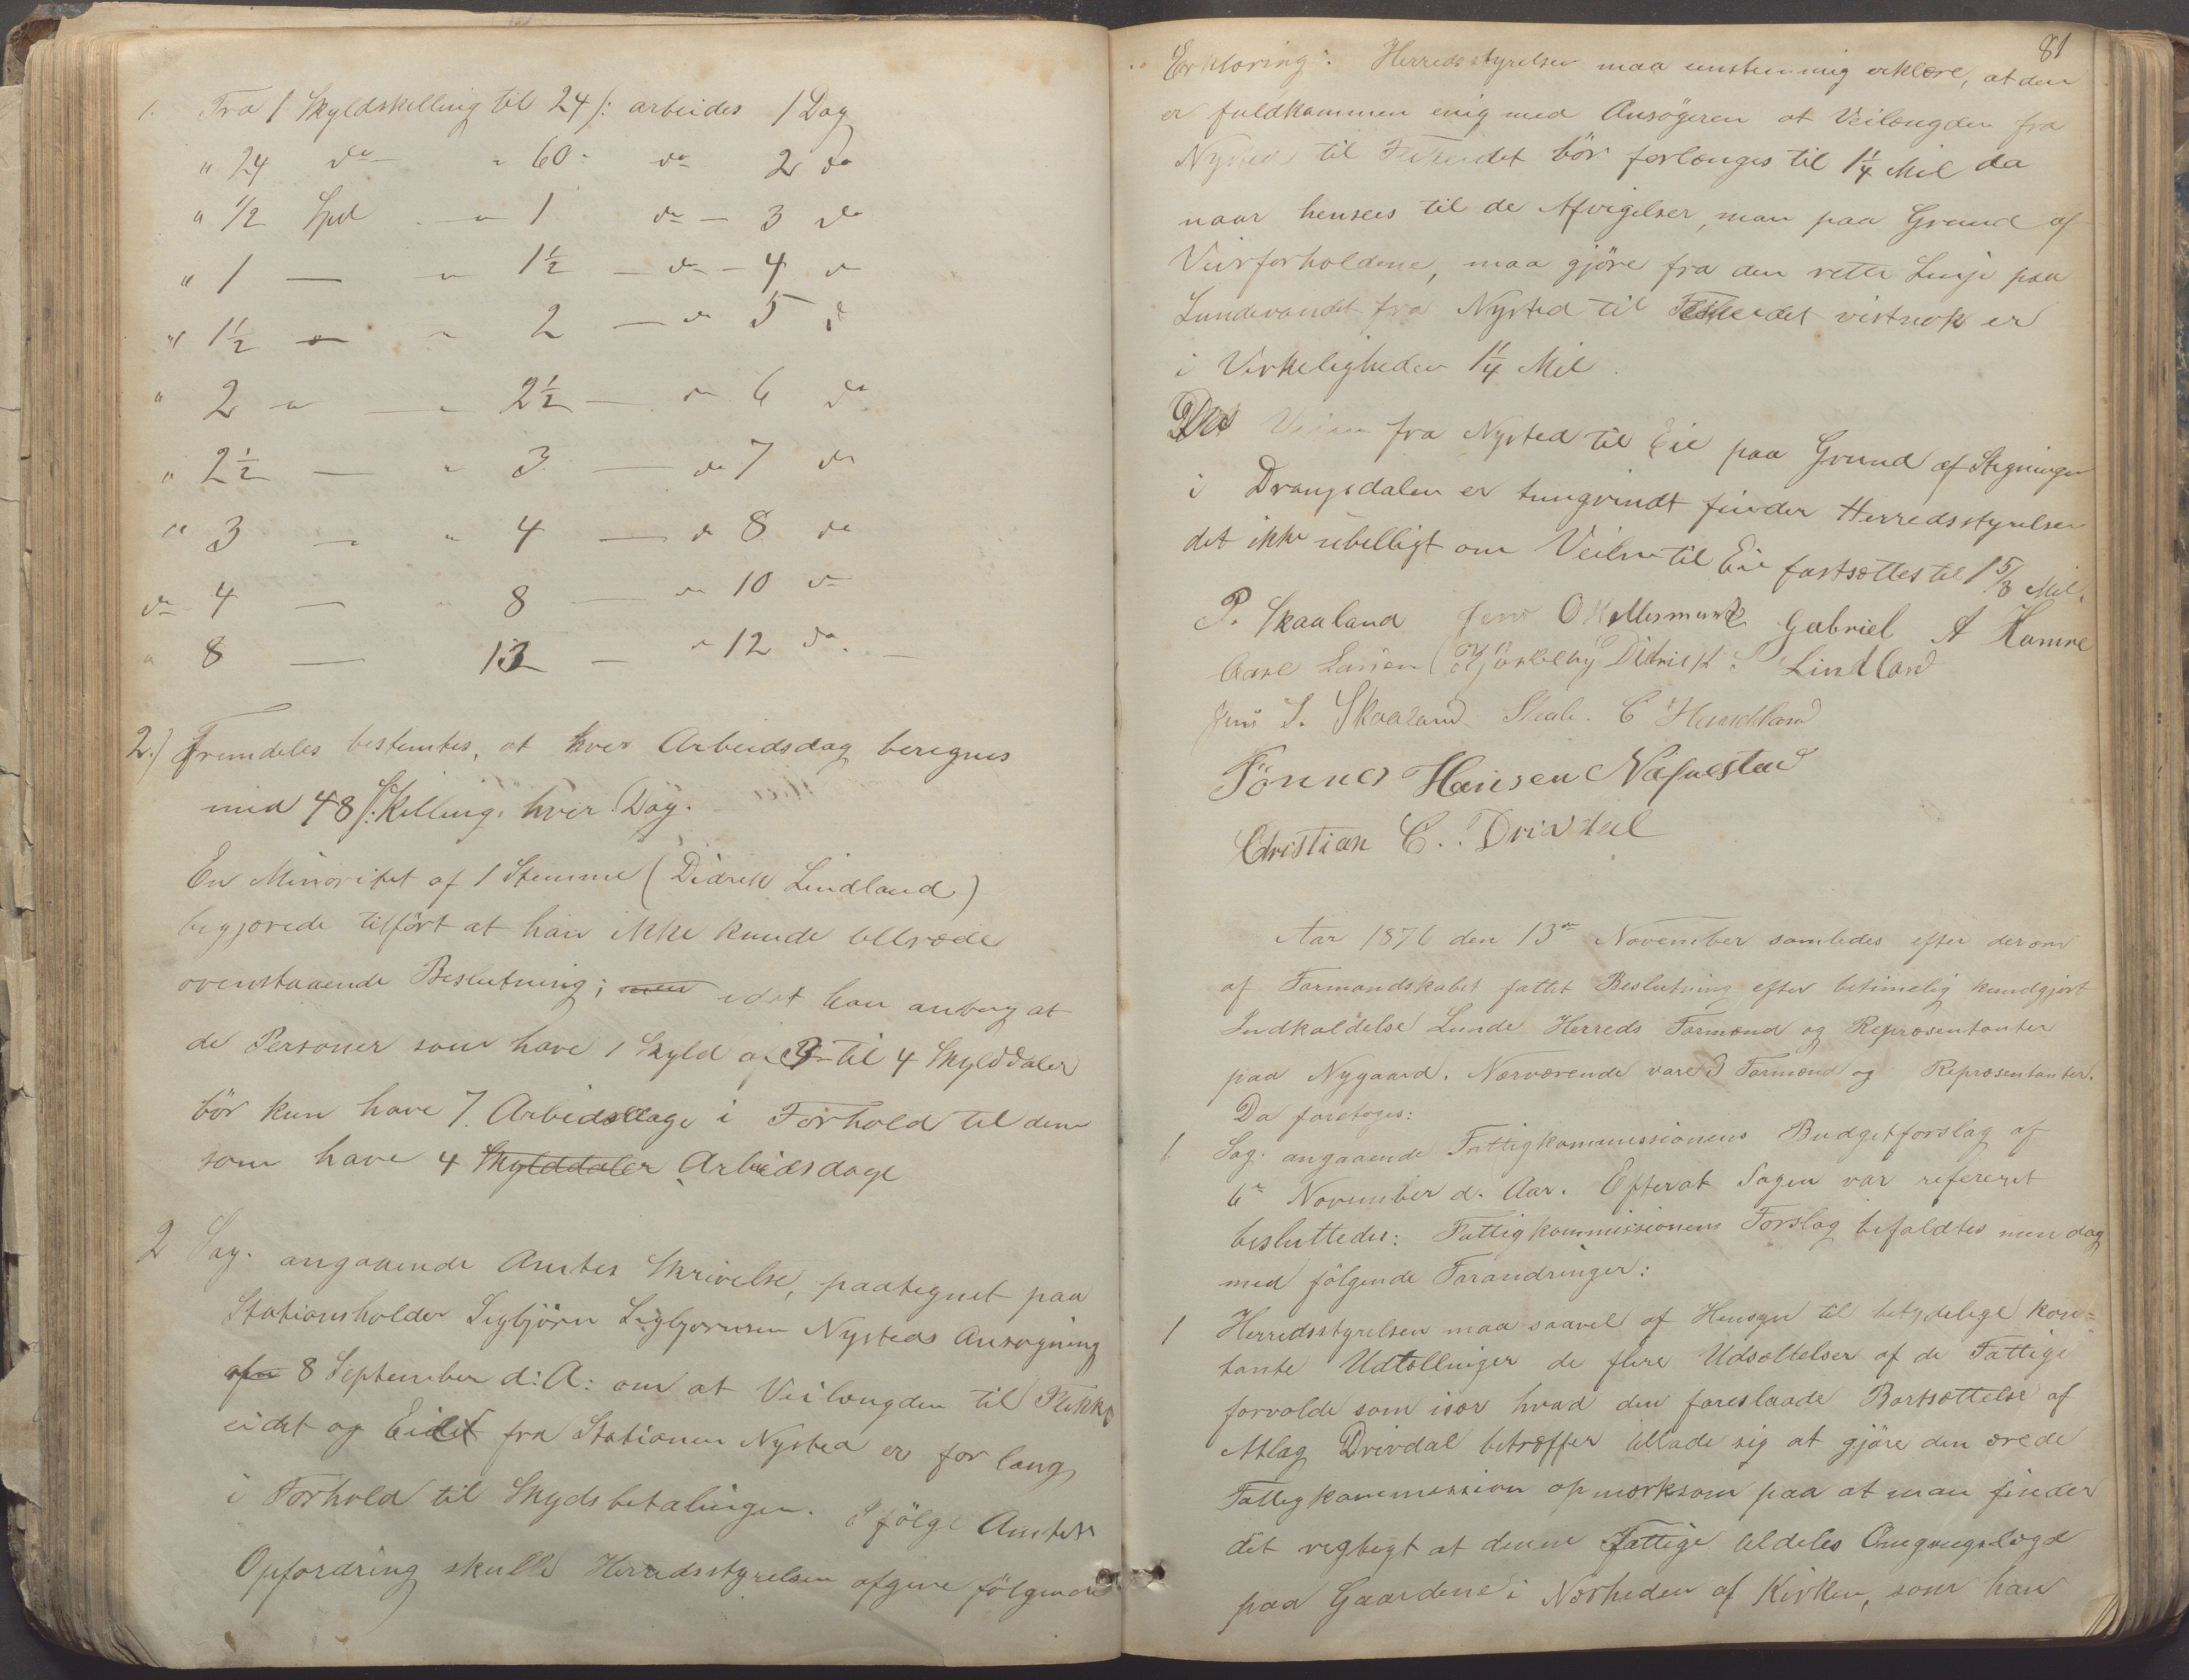 1. Fra 1 Skyldskilling til 24 /: arbeides 1 Dag
" 24 do " 60 do 2 do
" 1/2 Spd " 1 do — 3 do
" 1 — " 1 1/2 — do — 4 do
" 1 1/2 — " 2 — do 5 d
" 2 " — " 2 1/2 — do 6 do
" 2 1/2 — " 3 — do 7 do
" 3 — " 4 — do 8 do
do 4 — " 8 — do 10 do
" 8 — 12 — " 12 do. —
2.) Fremdeles bestemtes, at hver Arbeidsdag beregnes
med 48 Skilling. hver Dag.
En Minoritet af 1 Stemme (Didrik Lindland)
begjærede tilført at han ikke kunde tiltræde
ovenstaaende Beslutning; men idet han antog at
de Personer som have 1 Skyld af 3 til 4 Skylddaler
bør kun have 7. Arbeidsdage i Forhold til dem
som have 4 Skylddaler Arbeidsdage
2 Sag. angaaende Amtes Skrivelse, paategnet paa
Stationsholder Sigbjørn Sigbjørnsen Nysteds Ansøgning
afn 8 September d: A: om at Veilængden til Flikke
eidet og Eidet fra Stationen Nysted er for lang
i Forhold til Skydsbetalingen. Ifølge Amtets
Opfordring skulle Herredsstyrelsen afgive følgende
81
Erklæring: Herredsstyrelsen maa eenstemmig erklære, at den
er fuldkommen enig med Ansøgeren at Veilængden fra
Nysted til Flikeidet bør forlænges til 1 1/4 Mil da
naar hensees til de Afvigelser, man paa Grund af
Veirforholdene, maa gjøre fra den rette Linje paa
Lundevandet fra Nysted til Flikeidet vistnok er
i Virkeligheden 1 1/4 Mil.
Da Veien fra Nysted til Eie paa Grund af Stigningen
i Drangsdalen er tungvindt finder Herredsstyrelsen
det ikke ubilligt om Veilen til Eie fastsættes til 1 5/8 Mil.
P. Skaaland Jens O Mellesmark Gabriel A Hamre
Carl Larsen Kjørkeby Didrik Lindland
Jens S. Skaaland C Haadland
Tønnes Hansen Nafnestad
Christian C. Drivdal
Aar 1876 den 13de November samledes efter derom
af Formandskabet fattet Beslutning efter betimelig kundgjort
Indkaldelse Lunde Herreds Formænd og Repræsentanter
paa Nygaard. Nærværende vare 3 Formænd og Repræsentanter.
Da foretoges:
1. Sag. angaaende Fattigkommissionens Budgetforslag af
6te November d. Aar. Efterat Sagen var refereret
besluttedes: Fattigkommissionens Forslag bifaldtes men dog
med følgende Forandringer:
1 Herredsstyrelsen maa saavel af Hensyn til betydelige kon=
tante Udtællinger de flere Udsættelser af de Fattige
forvolde som især hvad den foreslaaede Bortsættelse af
Atlag Drivdal betræffer tillade sig at gjøre den ærede
Fattigkommission opmærksom paa at man finder
det rigtigt at denne Fattige tildeles Omgangslægd
paa Gaardene i Nærheden af Kirken, som han